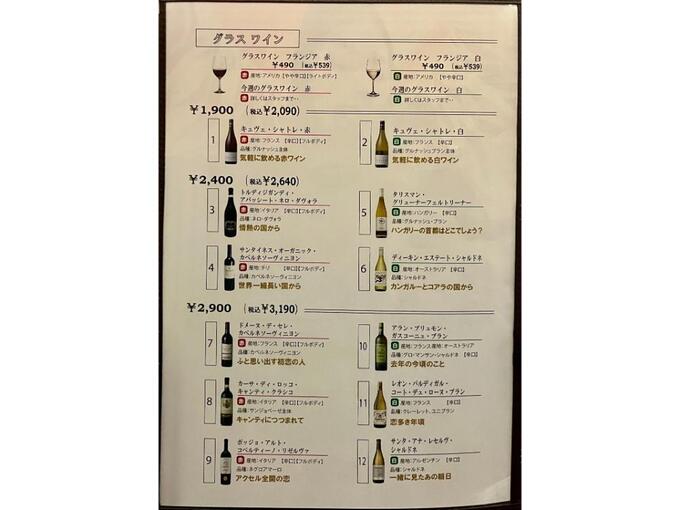 グラス ワイン
グラスワイン フランジア 赤
¥490 (税込¥539)
赤 産地:アメリカ 【やや辛口】【ライトボディ】
今週のグラスワイン 赤
赤 詳しくはスタッフまで・・
グラスワイン フランジア 白
¥490 (税込¥539)
白 産地:アメリカ 【やや辛口】
今週のグラスワイン 白
白 詳しくはスタッフまで・・
¥1,900 (税込¥2,090)
1
キュヴェ・シャトレ・赤
赤 産地:フランス 【辛口】【フルボディ】
品種:グルナッシュ主体
気軽に飲める赤ワイン
2
キュヴェ・シャトレ・白
白 産地:フランス 【辛口】
品種:グルナッシュブラン主体
気軽に飲める白ワイン
¥2,400 (税込¥2,640)
3
トルディジガンディ・
アパッシート・ネロ・ダヴォラ
赤 産地:イタリア 【辛口】【フルボディ】
品種:ネロ・ダヴォラ
情熱の国から
5
タリスマン・
グリューナーフェルトリーナー
白 産地:ハンガリー 【辛口】
品種:グルナッシュ・ブラン
ハンガリーの首都はどこでしょう?
4
サンタイネス・オーガニック・
カベルネソーヴィニヨン
赤 産地:チリ 【辛口】【フルボディ】
品種:カベルネソーヴィニヨン
世界一細長い国から
6
ディーキン・エステート・シャルドネ
白 産地:オーストラリア 【辛口】
品種:シャルドネ
カンガルーとコアラの国から
¥2,900 (税込¥3,190)
7
ドメーヌ・デ・セレ・
カベルネソーヴィニヨン
赤 産地:フランス 【辛口】【フルボディ】
品種:カベルネソーヴィニヨン
ふと思い出す初恋の人
10
アラン・ブリュモン・
ガスコーニュ・ブラン
白 産地:フランス 産地:オーストラリア
品種:グロ・マンサン・シャルドネ 【辛口】
去年の今頃のこと
8
カーサ・ディ・ロッコ・
キャンティ・クラシコ
赤 産地:イタリア 【辛口】【フルボディ】
品種:サンジョベーゼ主体
キャンティにつつまれて
11
レオン・バルディガル・
コート・デュ・ローヌ・ブラン
白 産地:フランス 【辛口】
品種:クレーレット、ユニブラン
恋多き年頃
9
ポッジョ・アルト・
コペルティーノ・リゼルヴァ
赤 産地:イタリア 【辛口】【フルボディ】
品種:ネグロアマーロ
アクセル全開の恋
12
サンタ・アナ・レセルヴ・
シャルドネ
白 産地:アルゼンチン 【辛口】
品種:シャルドネ
一緒に見たあの朝日